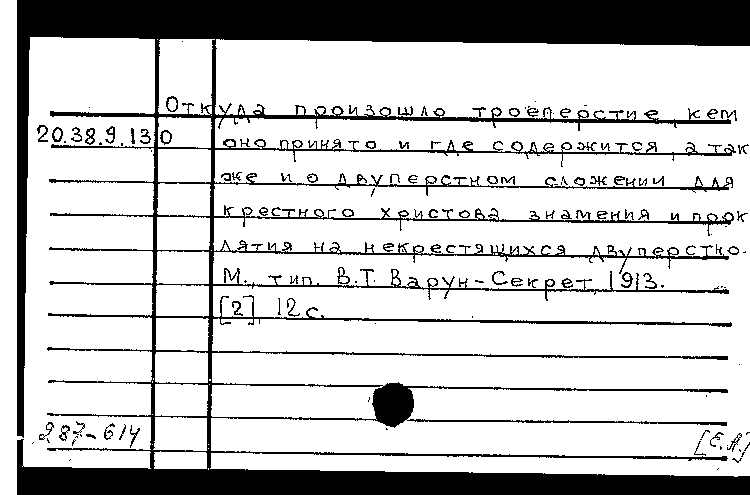 Откуда произошло троеперстие, кем
20.38.9.130 оно принято и где содержится, а так
же и о двуперстном сложении для
крестного христова знамения и прок
лятия на некрестящихся двуперстно.
М., тип. В.Т. Варун-Секрет, 1913.
[2], 12 с.
287-614 [Е.А.]